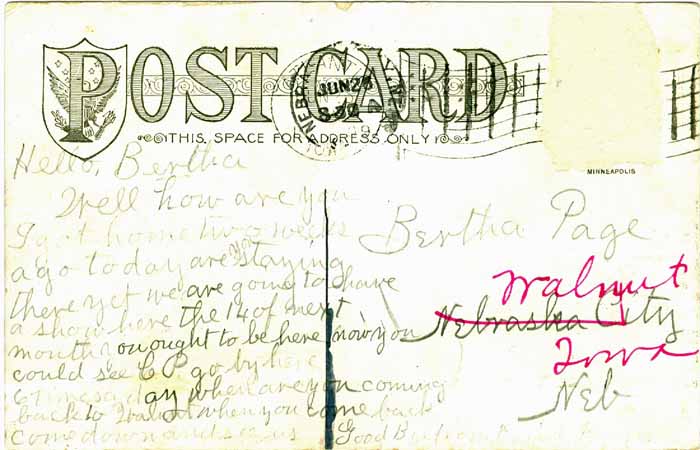 POST CARD
THIS SPACE FOR ADDRESS ONLY
JUN 28
8-30
MINNEAPOLIS
Hello, Bertha
Well how are you
I got home two weeks
ago to day are you staying
there yet we are going to have
a show here the 14 of next
month ought to be here now you
could see C P go by here
6 times a day when are you coming
back to Walnut when you come back
come down and see us Good By
Bertha Page
Walnut
Nebraska City
Iowa
Neb